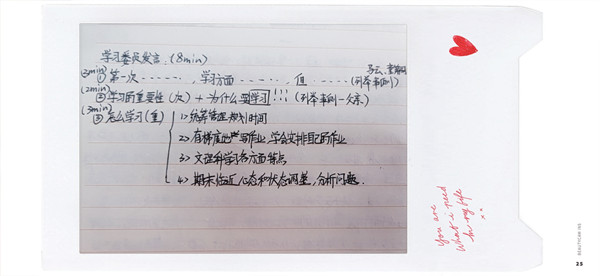 学习委员发言 (8min)
(3min) ① 第一次 ……, 学习方面 ……, 值 ……
(列举事例)
(2min) ② 学习的重要性 (次) + 为什么要学习!!! (列举事例一父亲)
(3min) ③ 怎么学习 (重)
1> 统筹管理规划时间
2> 有梯度地严写作业,学会安排自己的作业
3> 文理科学习各方面特点
4> 期末临近心态和状态调整,分析问题.
You are
what i need
in my life
x.
BEAUTICAM.INS
25